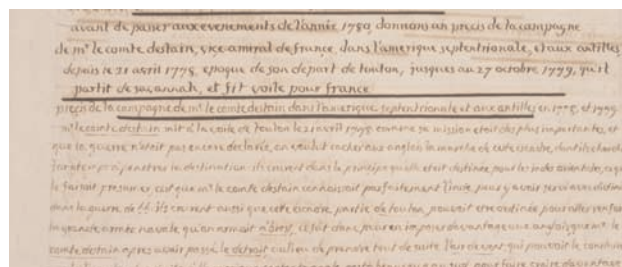 avant de passer aux evenements de l'année 1780, donnons un precis de la campagne
de mr le comte destain, vice-amiral de france, dans l'amerique septentrionale, et aux antilles
depuis le 21 avril 1778, epoque de son depart de toulon, jusques au 27 octobre 1779, qu'il
partit de savannah, et fit voile pour france
precis de la campagne de mr le comte destain dans l'amerique septentrionale et aux antilles en 1778, et 1779
mr le comte destain mit à la voile de toulon le 21 avril 1778. comme sa mission etait des plus importantes, et
que la guerre n'etait pas encore declarée, on voulut cacher aux anglais la marche de cette escadre, dont ils cherch
a penetrer la destination. ils crurent dans le principe qu'elle etait destinée pour les indes orientales, ce qui
le faisait presumer, c'est que mr le comte destain connaissait parfaitement l'inde, pour y avoir servi avec distinc
dans la guerre de ils crurent aussi que cette escadre, partie de toulon, pouvait etre destinée pour aller renfor
la grande armée navale qu'on armait à brest, et fait dans
comte destain apres avoir passé le detroit au lieu de prendre tout de suite l'air de vent, qui pouvait le conduire